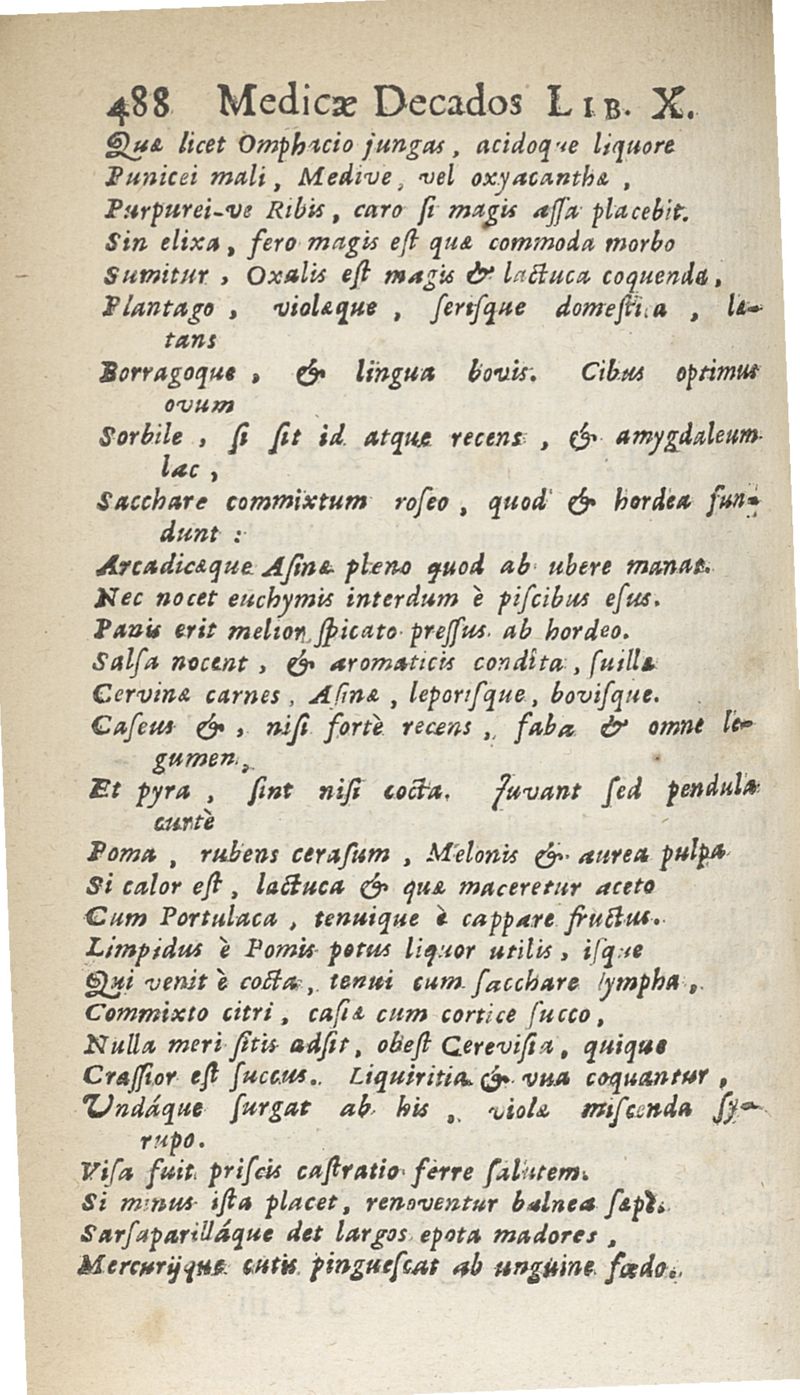 488 Medicæ Decados LIB. X.
Quæ licet Omphacio jungas, acidoque liquore
Punicei mali, Medive, vel oxyacanthæ,
Purpurei-ve Ribis, caro si magis assa placebit.
Sin elixa, fero magis est quæ commoda morbo
Sumitur, Oxalis est magis & lactuca coquenda,
Plantago, violæque, serisque domestica, læ-
tans
Borragoque, & lingua bovis. Cibus optimus
ovum
Sorbile, si sit id atque recens, & amygdaleum
lac,
Sacchare commixtum roseo, quod & hordea fun-
dunt:
Arcadicæque Asinæ pleno quod ab ubere manat.
Nec nocet euchymis interdum è piscibus esus.
Panis erit melior spicato pressus ab hordeo.
Salsa nocent, & aromaticis condita, suillæ
Cervinæ carnes, Asinæ, leporisque, bovisque.
Caseus &, nisi fortè recens, faba & omne le-
gumen,
Et pyra, sint nisi cocta. Juvant sed pendula
curtè
Poma, rubens cerasum, Melonis & aurea pulpa
Si calor est, lactuca & quæ maceretur aceto
Cum Portulaca, tenuique è cappare fructus.
Limpidus è Pomis potus liquor utilis, isque
Qui venit è cocta, tenui cum sacchare lympha,
Commixto citri, casiæ cum cortice succo,
Nulla meri sitis adsit, obest Cerevisia, quique
Crassior est succus. Liquiritia & uva coquantur,
Undáque surgat ab his, violæ miscenda sy-
rupo.
Visa fuit priscis castratio ferre salutem.
Si minus ista placet, renoventur balnea sæpè.
Sarsaparilláque det largos epota madores,
Mercurijque cutis pinguescat ab unguine fœdo.